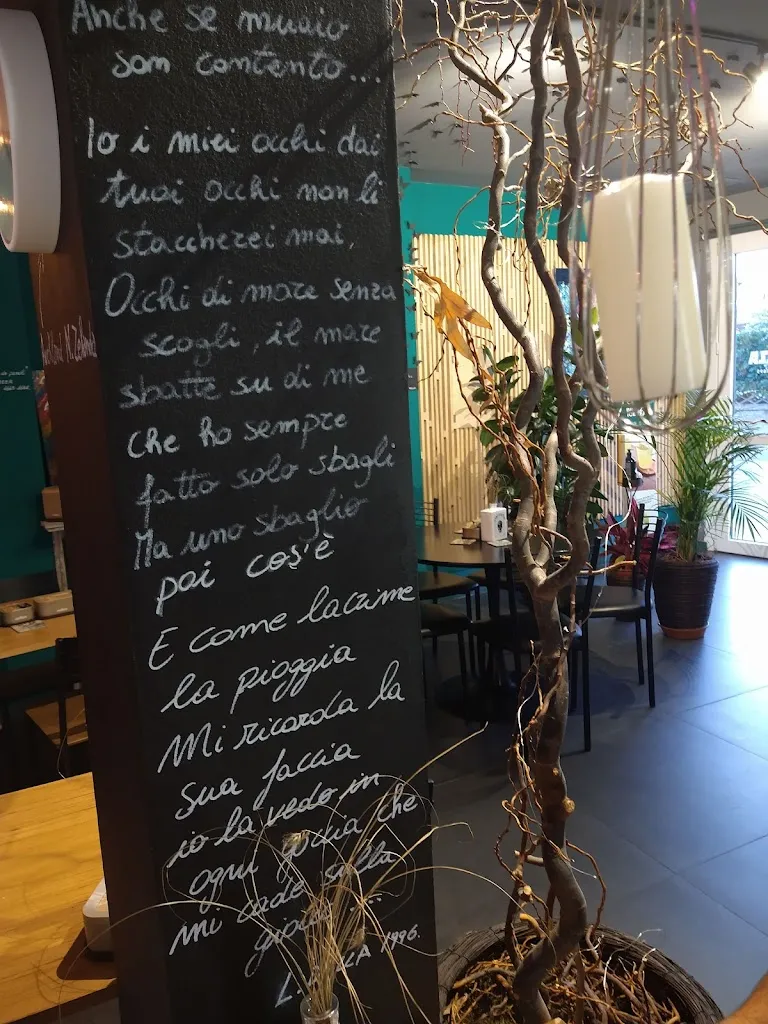 Anche se muoio
son contento...
Io i miei occhi dai
tuoi occhi non li
staccherei mai,
Occhi di mare senza
scogli, il mare
sbatte su di me
che ho sempre
fatto solo sbagli
Ma uno sbaglio
poi cos'è
E come lacrime
la pioggia
Mi ricorda la
sua faccia
io la vedo in
ogni goccia che
mi cade sulla
1996.